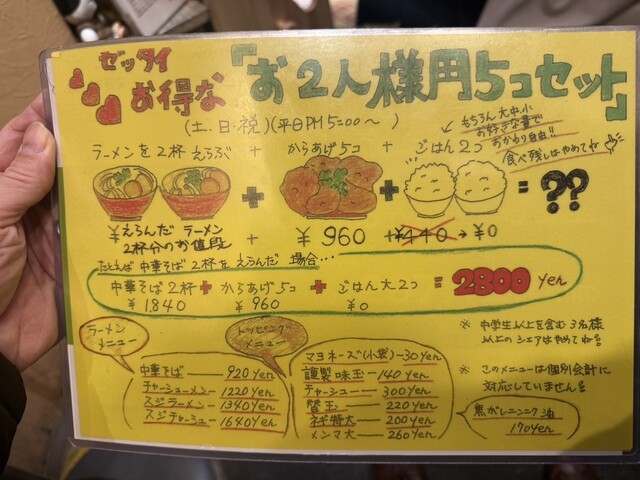 ゼッタイ
お得な
『お2人様用5コセット』
(土、日・祝)(平日PM5:00〜 )
もちろん大中小
お好きな量で
おかわり自由!!
食べ残しはやめてね
ラーメンを2杯 えらぶ + からあげ5コ + ごはん2つ
+ + = ??
¥えらんだ ラーメン
2杯分のお値段 + ¥960 + ¥440 → ¥0
たとえば 中華そば 2杯を えらんだ 場合…
中華そば2杯 + からあげ5コ + ごはん大2つ = 2800 yen
¥1.840 ¥960 ¥0
ラーメン
メニュー
中華そば — 920 yen
チャーシューメン — 1220 yen
スジラーメン — 1340 yen
スジチャーシュー — 1640 yen
トッピング
メニュー
マヨネーズ(小袋) — 30 yen
讃製味玉 — 140 yen
チャーシュー — 300 yen
替玉 — 220 yen
ネギ特大 — 200 yen
メンマ大 — 260 yen
※ 中学生以上を含む 3名様
以上のシェアはやめてね!!
※ このメニューは個別会計に
対応していません!!
焦がしニンニク油
170 yen